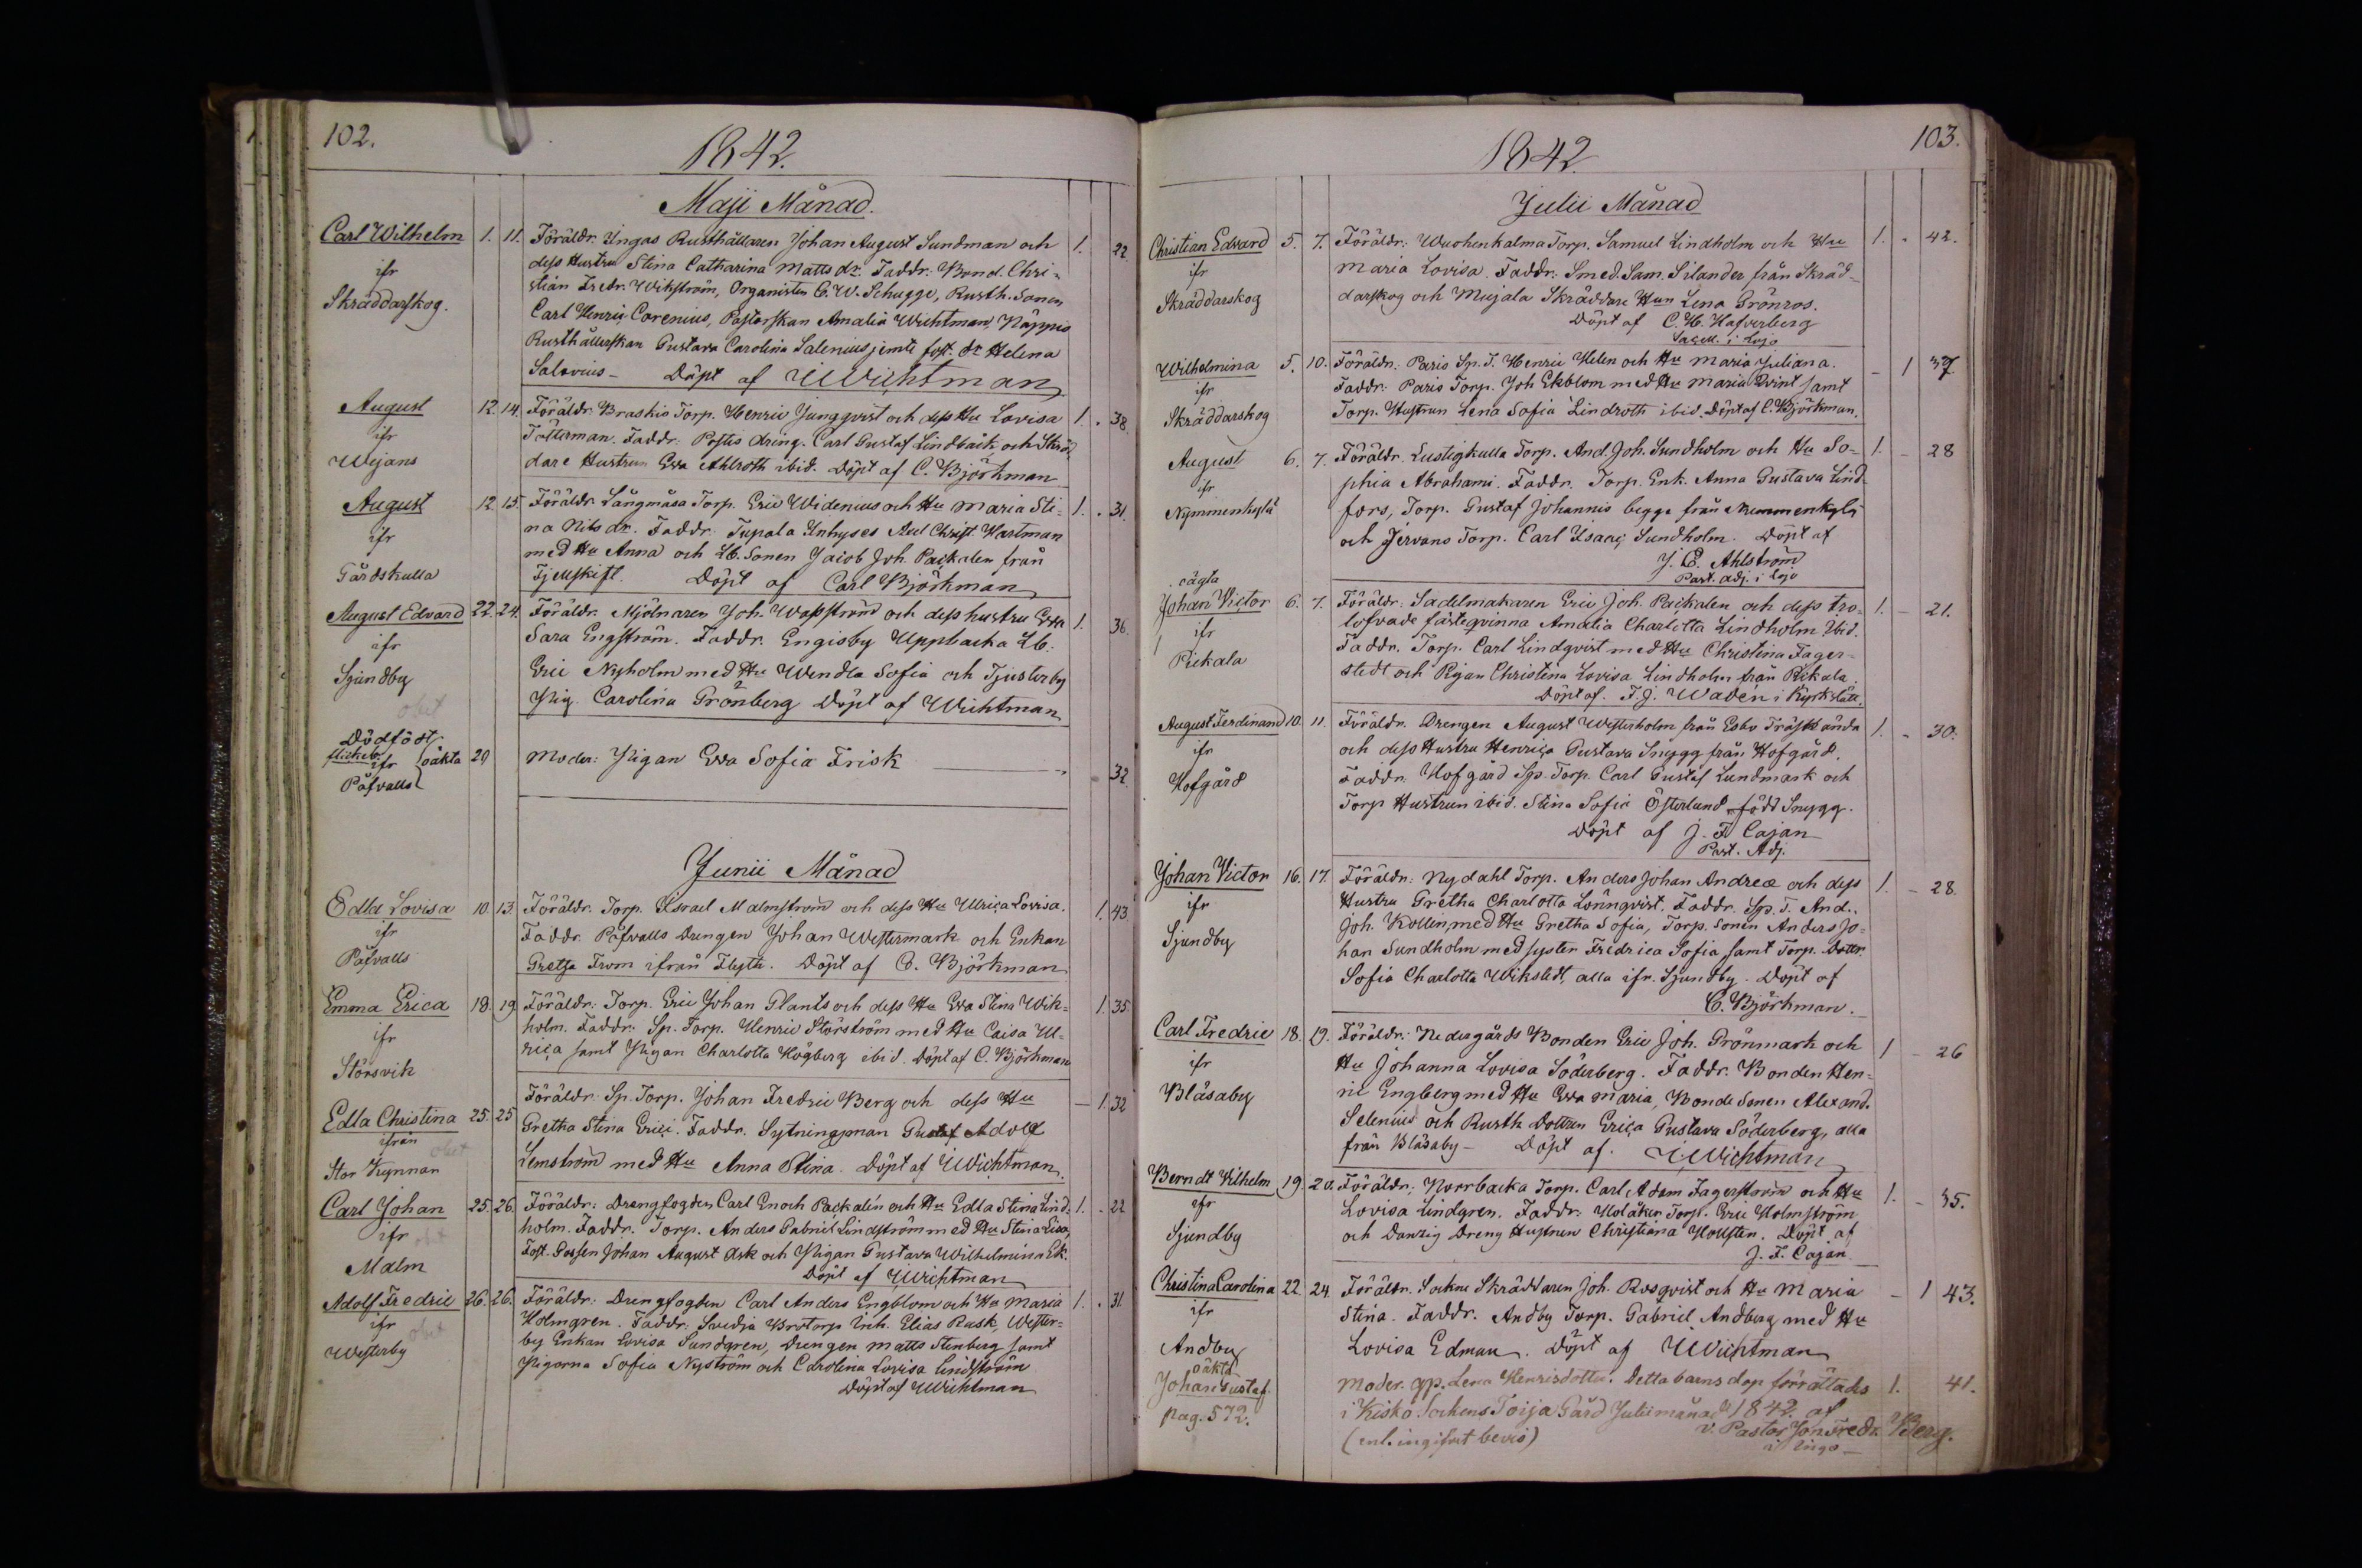 102.
1842.
Maji Månad.
Carl Wilhelm 1. 11. Föräldr. Ingas Rusthållaren Johan August Sundman och 1. 22.
ifr dess Hustru Stina Catharina Matts dr. Faddr: Bond. Chri-
Skräddarskog. stian Fredr. Wikström, Organisten C. W. Schugge, Rusth. Sonen
Carl Henric Corenius, Pastorskan Amalia Wichtman, Näppis
Rusthållerskan Gustava Carolina Salenius jemte fost. dr Helena
Salovius – Döpt af Wichtman
August 12. 14. Föräldr. Braskis Torp. Henric Jungqvist och dess Hu Lovisa 1. 38.
ifr Tötterman. Faddr: Postis dräng. Carl Gustaf Lindbäck och Skräd
Wijans dare Hustrun Eva Ahlroth ibid. Döpt af C. Björkman
August 12. 15. Föräldr. Långmåsa Torp. Eric Widenius och Hu Maria Sti- 1. 31.
ifr na Nils dr. Faddr. Tupala Inhyses Christ. Hartman
Gårdskulla med Hu Anna och Lb. Sonen Jacob Joh. Packalen från
Fjellskift. Döpt af Carl Björkman
August Edvard 22. 24. Föräldr. Mjölnaren Joh. Wasström och dess hustru Eva 1. 36.
ifr Sara Engström. Faddr. Engisby Uppbacka Lb.
Sjundby Eric Nyholm med Hu Wendla Sofia och Tjusterby
obiit Pig. Carolina Grönberg Döpt af Wichtman
Dödfödt
flickeb. ifr oäkta 29 Moder: Pigan Eva Sofia Frisk 32.
Påfvalls
Junii Månad
Edla Lovisa 10. 13. Föräldr. Torp. Israel Malmström och dess Hu Ulrica Lovisa. 1. 43
ifr Faddr. Påfvalls Drengen Johan Westermark och Enkan
Påfvalls Gretha From ifrån Flyth. Döpt af C. Björkman
Emma Erica 18. 19. Föräldr: Torp. Eric Johan Glants och dess Hu Eva Stina Wik- 1. 35.
ifr holm. Faddr: Sp. Torp. Henric Störström med Hu Caisa Ul-
Störsvik rica samt Pigan Charlotta Högberg ibid. Döpt af C. Björkman
Edla Christina 25. 25 Föräldr: Sp. Torp. Johan Fredric Berg och dess Hu – 1. 32
ifrån obiit Gretha Stina Erici. Faddr. Sytningsman Gustaf Adolf
Stor Kynnar Lemström med Hu Anna Stina. Döpt af Wichtman.
Carl Johan 25. 26. Föräldr: Drengfogden Carl Enoch Packalén och Hu Edla Stina Lind- 1. 22
ifr obiit holm. Faddr. Torp. Anders Gabriel Lindström med Hu Stina Lisa,
Malm Fost. Gossen Johan August Ask och Pigan Gustava Wilhelmina Ek.
Döpt af Wichtman
Adolf Fredric 26. 26. Föräldr: Drengfogden Carl Anders Engblom och Hu Maria 1. 31
ifr obiit Holmgren. Faddr: Svidja Brotorp Inh. Elias Rask, Wester-
Westerby by Enkan Lovisa Sundgren, Drengen Matts Stenberg samt
Pigorna Sofia Nyström och Carolina Lovisa Lindström
Döpt af Wichtman
103.
1842
Julii Månad
Christian Edvard 5. 7. Föräldr: Wuohenkalma Torp. Samuel Lindholm och Hu 1. 42.
ifr Maria Lovisa. Faddr. Smed. Sam. Silander från Skräd-
Skräddarskog darskog och Mujala Skräddare Hun Lena Grönros.
Döpt af C. H. Hafverberg
Sacell. i Lojo
Wilhelmina 5. 10. Föräldr. Paris Sp. T. Henric Helen och Hu Maria Juliana. – 1 37
ifr Faddr. Paris Torp. Joh Ekblom med Hu Maria Qvint samt
Skräddarskog Torp. Hustrun Lena Sofia Lindroth ibid. Döpt af C. Björkman.
August 6. 7. Föräldr. Lustigkulla Torp. And. Joh. Sundholm och Hu So- 1. – 28
ifr phia Abrahami. Faddr. Torp. Enk. Anna Gustava Lind-
Nymmenkylä fors, Torp. Gustaf Johannis begge från Nummenkylä
och Jervans Torp. Carl Isaac Sundholm. Döpt af
J. E. Ahlström
Past. adj. i Lojo
oägta
Johan Victor 6. 7. Föräldr: Sadelmakaren Eric Joh. Packalen och dess tro- 1. – 21.
ifr lofvade fästeqvinna Amalia Charlotta Lindholm Ibid.
Pickala Faddr. Torp. Carl Lindqvist med Hu Christina Fager-
stedt och Pigan Christina Lovisa Lindholm från Pikala.
Döpt af. F. J. Wadén i Kyrkslätt.
August Ferdinand 10. 11. Föräldr. Drengen August Westerholm från Esbo Träskända 1. – 30.
ifr och dess Hustru Henrica Gustava Snygg från Hofgård.
Hofgård Faddr. Hofgård Sp. Torp. Carl Gustaf Lundmark och
Torp Hustrun ibid. Stina Sofia Österlund född Snygg.
Döpt af J. F. Cajan
Past. Adj.
Johan Victor 16. 17. Föräldr: Nydahl Torp. Anders Johan Andreæ och dess 1. – 28.
ifr Hustru Gretha Charlotta Lönnqvist. Faddr. Sp. T. And.
Sjundby Joh. Kollin med Hu Gretha Sofia, Torp. Sonen Anders Jo-
han Sundholm med syster Fredrica Sofia samt Torp. Dottr.
Sofia Charlotta Wikstedt, alla ifr. Sjundby. Döpt af
C. Björkman.
Carl Fredric 18. 19. Föräldr: Nedergårds Bonden Eric Joh. Grönmark och 1 – 26
ifr Hu Johanna Lovisa Söderberg. Faddr. Bonden Hen-
Blåsaby ric Engberg med Hu Eva Maria, Bonde Sonen Alexand.
Selenius och Rusth Dottren Erica Gustava Söderberg, alla
från Blåsaby – Döpt af. Wichtman
Berndt Wilhelm 19. 20. Föräldr: Norrbacka Torp. Carl Adam Fagerström och Hu 1. – 35.
ifr Lovisa Lindgren. Faddr: Holåker Torp. Eric Holmström
Sjundby och Danzig Dreng Hustrun Christiana Hollsten. Döpt af
J. F. Cajan
Christina Carolina 22. 24. Föräldr. Sockne Skräddaren Joh. Rosqvist och Hu Maria – 1 43.
ifr Stina. Faddr. Andby Torp. Gabriel Andberg med Hu
Andby Lovisa Edman. Döpt af Wichtman
oäkta
Johan Gustaf. Moder. qp. Lena Henrisdotter. Detta barns dop förrättades 1. 41.
pag. 572. i Kisko Sockens Toija Gård Julii månad 1842. af
(enl. ingifvet bevis) v. Pastor Jon Fredr. Berg.
i Ingo –